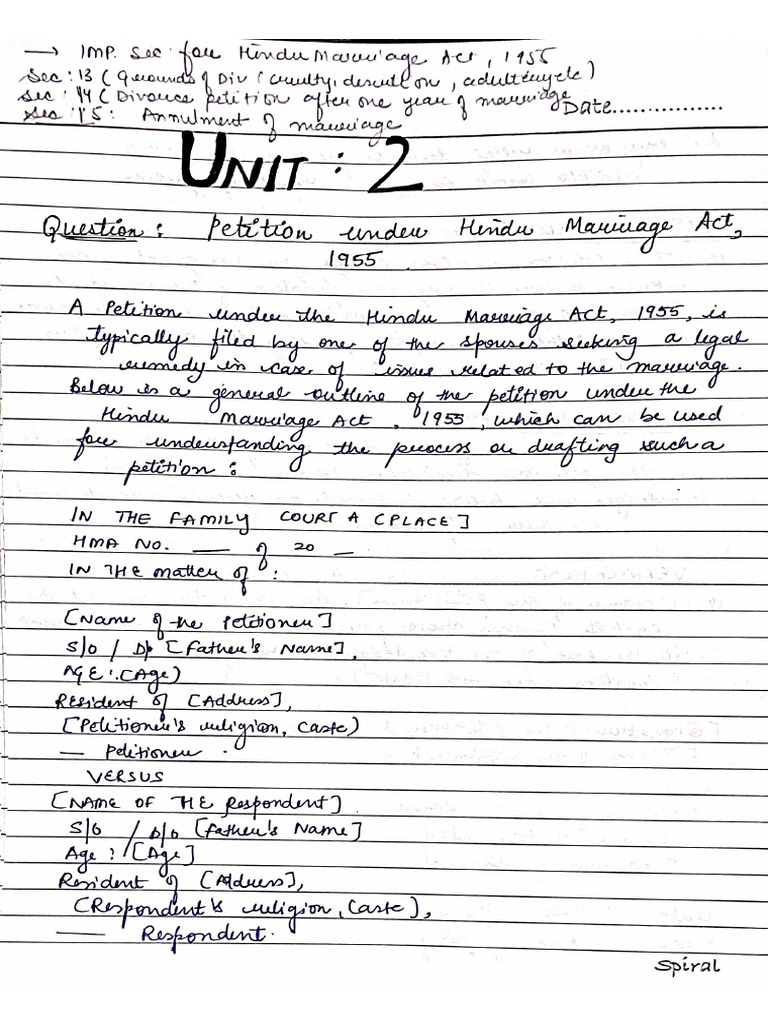 → IMP. Sec for Hindu Marriage Act, 1955
Sec: 13 (Grounds of Div (cruelty, desertion, adultery etc)
Sec: 14 (Divorce petition after one year of marriage
Date................
Sec: 15: Annulment of marriage
UNIT : 2
Question: Petition under Hindu Marriage Act,
1955.
A Petition under the Hindu Marriage Act, 1955, is
typically filed by one of the spouses seeking a legal
remedy in case of issue related to the marriage.
Below is a general outline of the petition under the
Hindu Marriage Act, 1955, which can be used
for understanding the process or drafting such a
petition:
IN THE FAMILY COURT A (PLACE]
HMA NO. __ of 20 __
IN THE matter of:
[Name of the Petitioner]
S/o / D/o [Father's Name],
AGE: (Age)
Resident of [Address],
[Petitioner's religion, Caste)
— Petitioner.
VERSUS
[NAME OF THE Respondent]
S/o / D/o [Father's Name]
Age: [Age]
Resident of [Address],
[Respondent's religion, Caste],
— Respondent.
Spiral